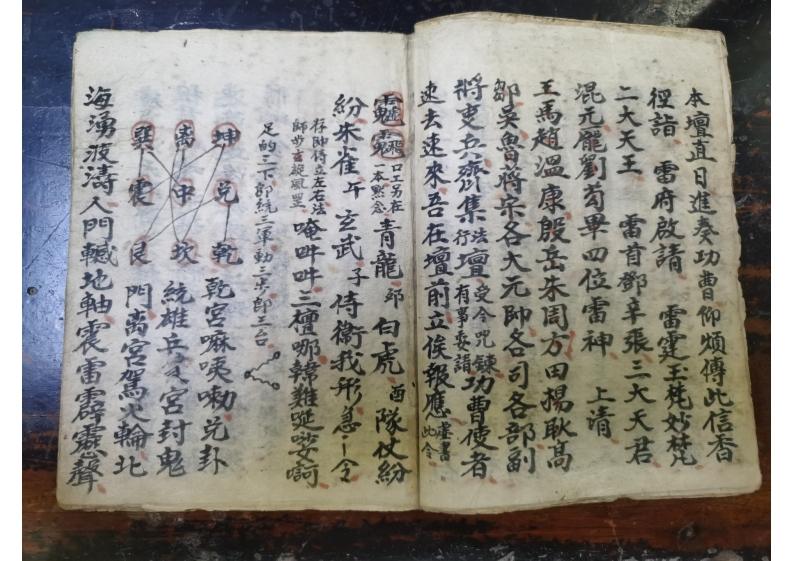 本壇直日進奏功曹仰煩傳此信香
徑詣 雷府啟請 雷霆玉梵妙梵
二大天王 雷首鄧辛張三大天君
混元龐劉苟畢四位雷神 上清
王馬趙溫康殷岳朱周方田楊耿高
鄒吳魯蔣宗各大元帥各司各部副
將吏兵齊集法行壇受令咒鍊有事妄請功曹使者
速去速來吾在壇前立俟報應虛書此令
青龍卯白虎酉隊仗紛
紛朱雀午玄武子侍衛我形急令
存帥侍立左右法
師步玄旋風罡
唵吽吽三檀哪
足的三下部統三軍動三步郎三台
坤 离 巽
兌 中 震
乾 坎 艮
乾宮嘛咦嘞兌卦
統雄兵艮宮封鬼
門离宮駕火輪北
海湧波濤人門轗地軸震雷霹靂聲